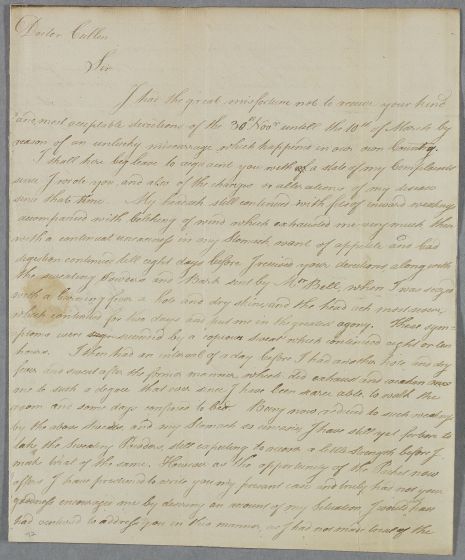 Doctor Cullen
Sir
I had the great misfortune not to receive your kind
and most acceptable directions of the 30th Novr untill the 10th of March by
reason of an unlucky miscarriage which happens in our own Country.
I shall here beg leave to acquaint you with a state of my Complaints
since I wrote you, and also of the changes or alterations of my disease
since that time. My health still continued with fits of inward weakness
accompanied with belching of wind which exhausted me very much then
with a continual uneasiness in my Stomach want of appetite and bad
digestion continued till eight days before I received your directions along with
the sweating Powders and Bark sent by Mr Bell, when I was seized
with a burning fever a hote and dry skin, and the head ach most severe
which continued for two days and put me in the greatest agony. These sym-
ptoms were succeeded by a copious sweat which continued eight or ten
hours. I then had an interval of a day before I had another hote and dry
fever and sweat after the former manner, which did exhaust and weaken me
me to such a degree that ever since I have been scarce able to walk the
room and some days confined to bed. Being now reduced to such weakness
by the above disease, and my Stomach so uneasie, I have still yet forborn to
take the Sweating Powders, still expecting to recover a little strength before I
make trial of the same. However as the opportunity of the Packet now
offers I have presumed to write you my present case and truly has not your
goodness encourages me by desiring an account of my Situation, I would have
had ventured to address you in this manner, as I has not made trial of the